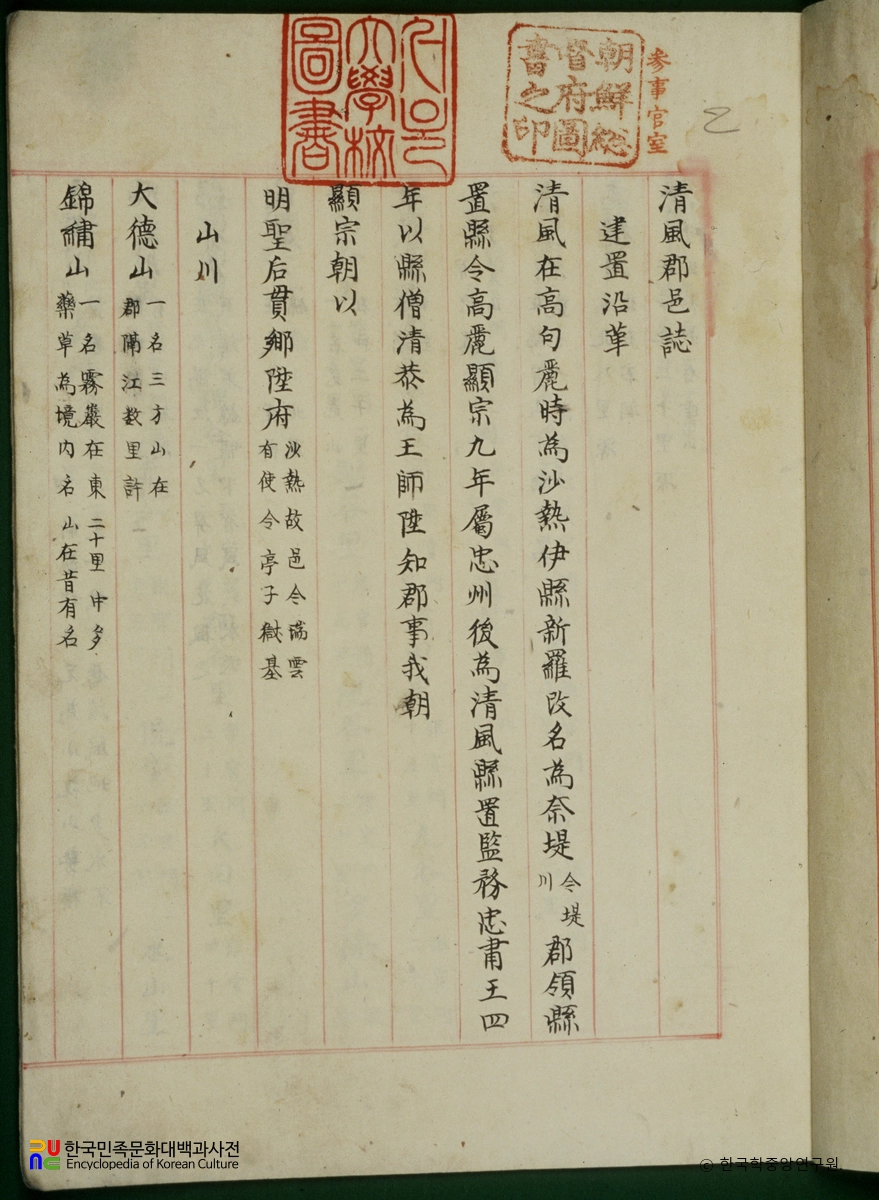 清風郡邑誌
建置沿革
清風在高句麗時為沙熱伊縣新羅改名為奈堤令堤川郡領縣
置縣令高麗顯宗九年屬忠州後為清風縣置監務忠肅王四
年以縣僧清恭為王師陞知郡事我朝
顯宗朝以
明聖后貫鄉陞府沙熱故邑令瑞雲
有使令亭子獄基
山川
大德山一名三方山在
郡隔江数里許
錦繡山一名霧巖在東二十里中多
藥草為境内名山在昔有名
參事官室
朝鮮總
督府圖
書之印
大學校
圖書
乙
한국민족문화대백과사전
Encyclopedia of Korean Culture
© 한국학중앙연구원